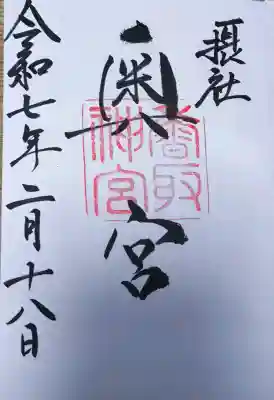 摂社
奥宮
香取神宮
令和七年二月十八日